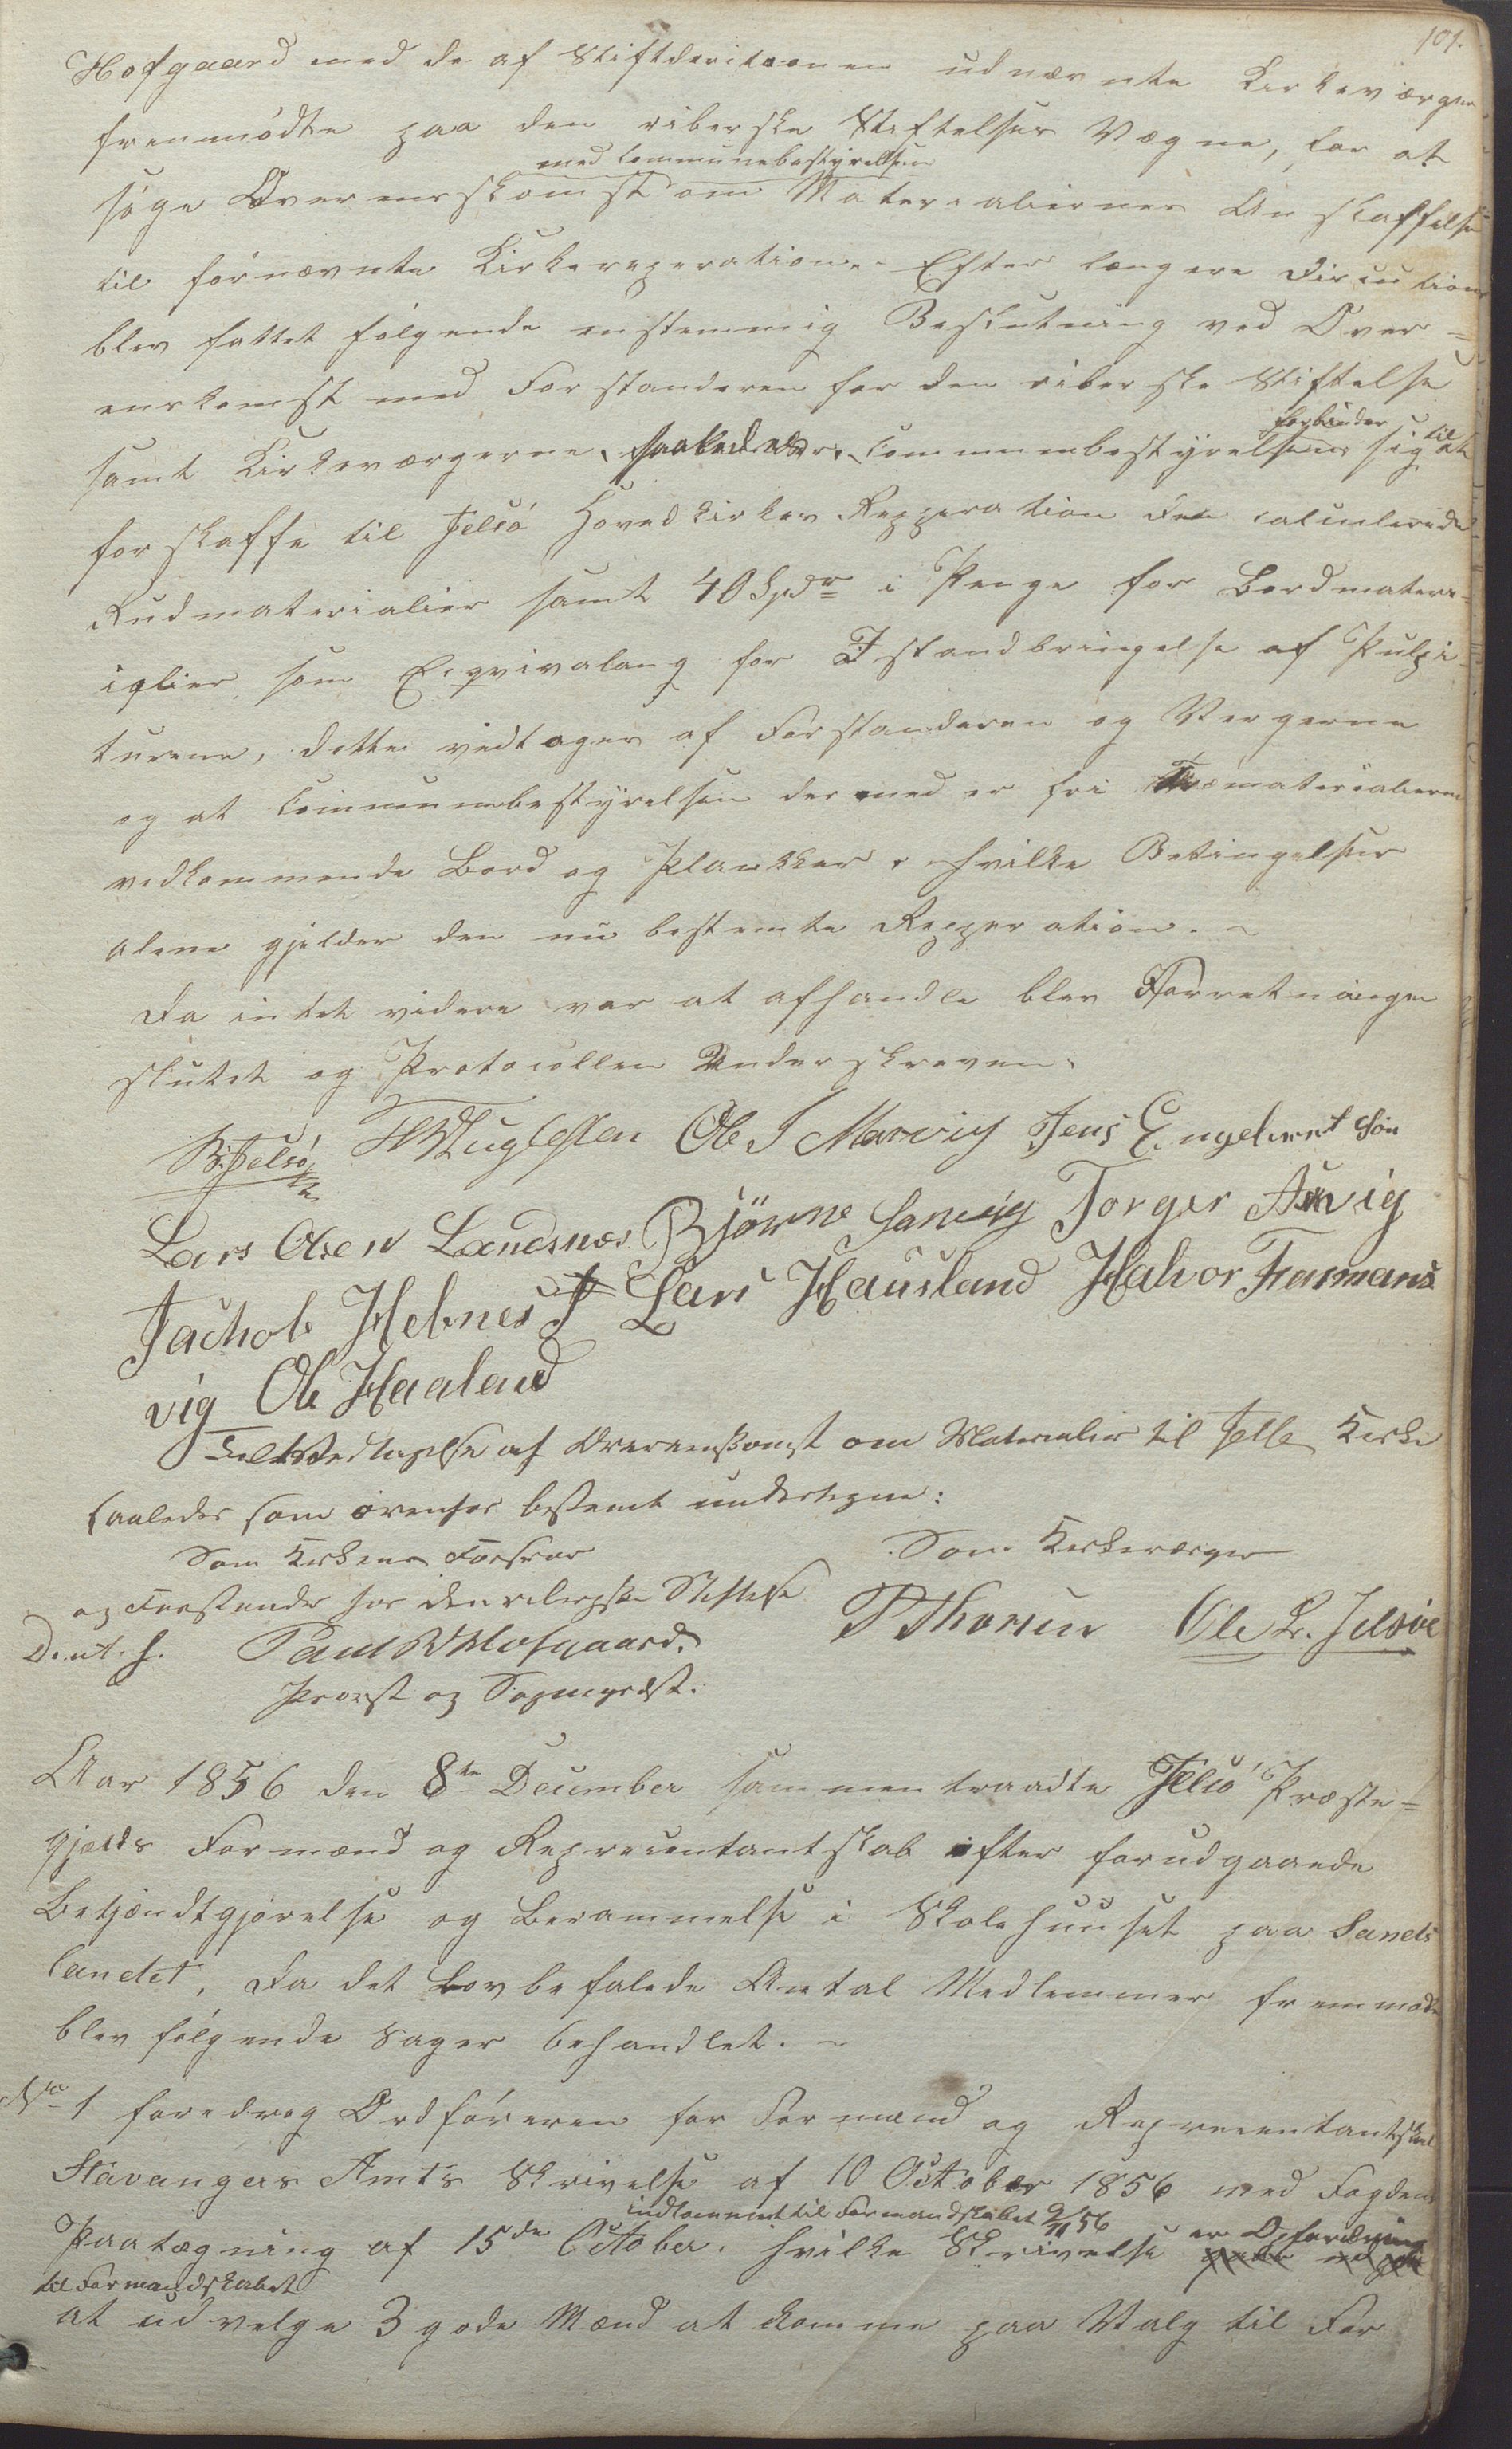 101.
Hofgaard med de af Stiftderitionen udnævnte Kirkeværger
fremmødte paa den riberske Stiftelses Vægne, for at
med Communebestyrelsen
søge Overensskomst om Materialiernes Anskaffelse
til førnævnte Kirkereperation. Efter længere Discution
blev fattet følgende enstemmig Beslutning ved Over=
enskomst med Forstanderen for den riberske Stiftelse
forbinder til
samt Kirkeværgerne, saaledes Communebestyrelsen sig at
forskaffe til Jelsø Hovedkirkes Repperation den calculerede
Rudmaterialier samt 40 Spdr i Penge for Bordmateri-
ialier som Eqvivalang for Istandbringelse af Pulpi-
turene, dette vedtages af Forstanderen og Vergerne
og at Communebestyrelsen dermed er fri Træmaterialierne
vedkommende Bord og Plankker, hvilke Betingelser
alene gjelder den nu bestemte Repperation. ~
Da intet videre var at afhandle blev Forretningen
slutet og Protocollen Underskreven.
Ole J Marvig Jens Engebret søn
Lars Olsen Landsnæs Bjørne Sanvig Torger
Jachob Hebnes Lars Hausland Halvor Farmans
vig Ole Haaland
Til Vedtagelse af Overenskomst om Materialier til Jelse Kirke
saaledes som ovenfor bestemt undertegne:
Som Kirkens Forsvar Som Kirkeværger
og Forstander for den ribergske Stiftelse
D. ut. s. Paul Hofgaard. P Thorsen Ole L. Jelsøe
Provst og Sognepræst.
Aar 1856 den 8de December sammentraadte Jelsø Præste=
gjælds Formænd og Repræsentantskab efter forudgaaende
Bekjændtgjørelse og Berammelse i Skolehuuset paa Sands
landet, Da det Lovbefalede Antal Medlemmer fremmødte
blev følgende Sager behandlet. ~
No 1 foredrog Ordføreren for Formænd og Repræsentantskab
Stavangers Amts Skrivelse af 10 October 1856 med Fogdens
indkommet til Formandskabet 9/11 56
Paategning af 15de October. hvilke Skrivelse er Opfordring
til Formandskabet
at udvelge 3 gode Mænd at komme paa Valg til For